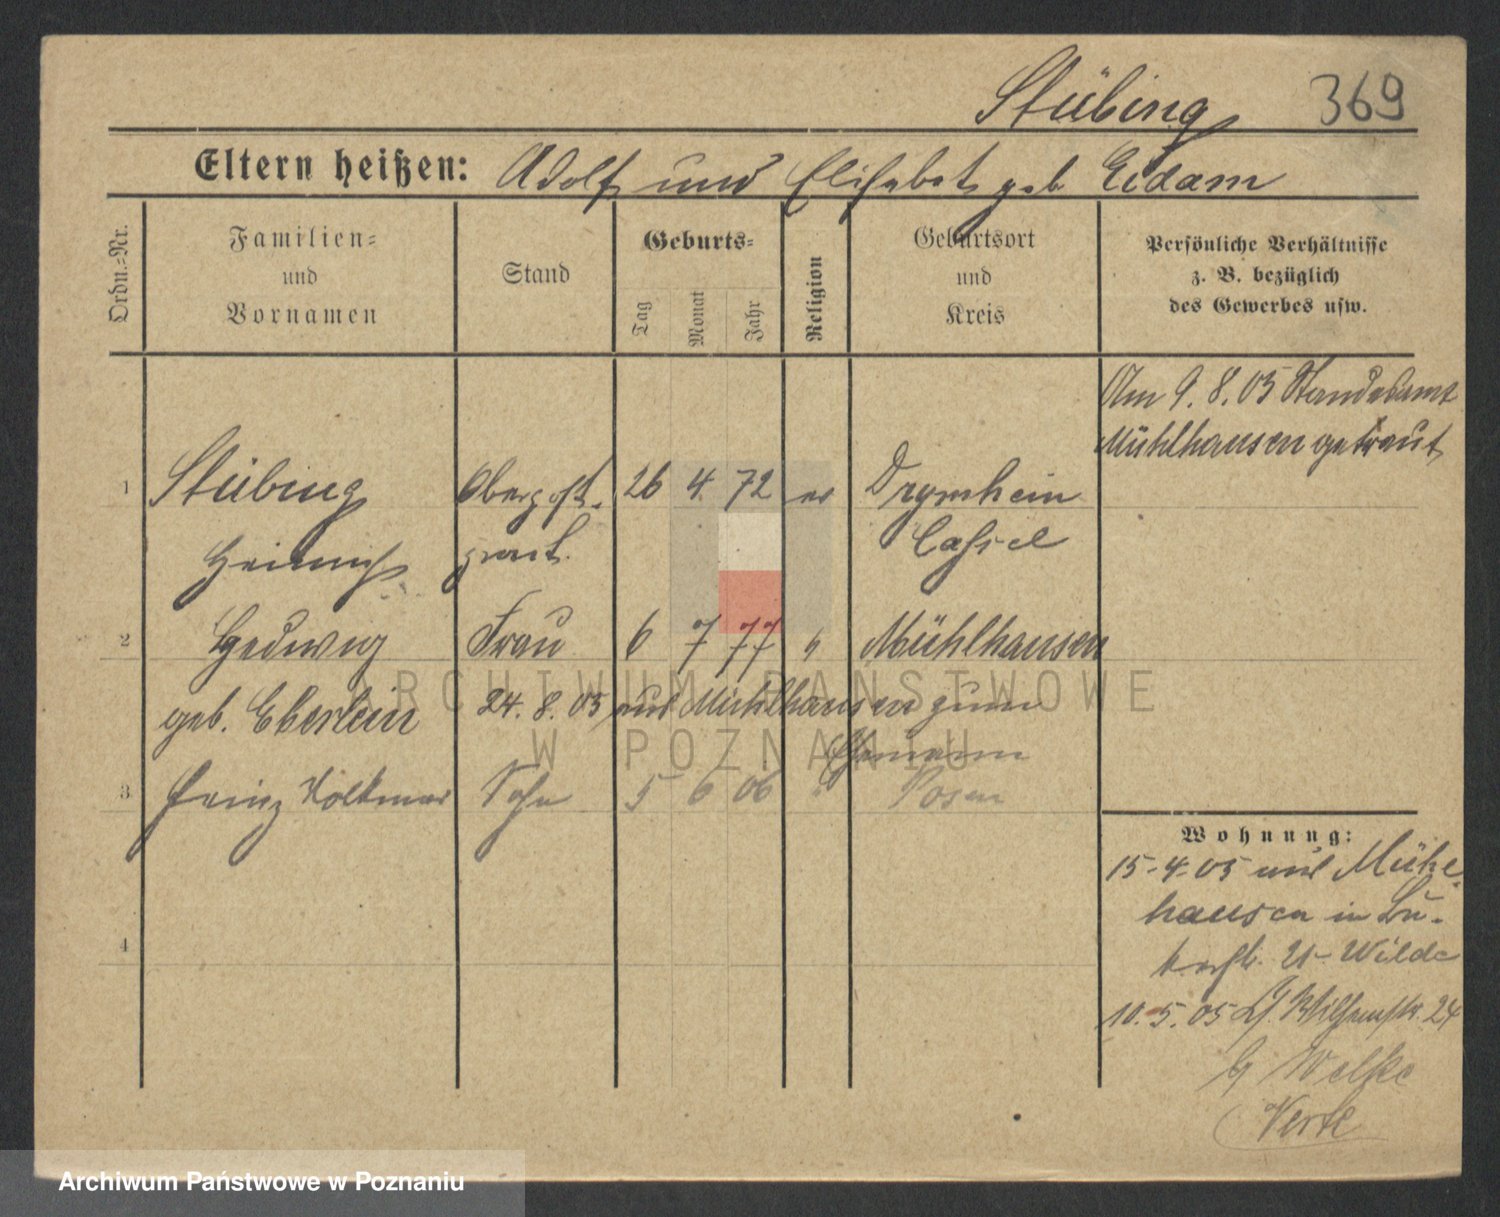 Stübing 369
Eltern heißen: Adolf und Elisabet geb Eidam
Ordn.-Nr.
Familien-
und
Vornamen
Stand
Geburts-
Tag
Monat
Jahr
Religion
Geburtsort
und
Kreis
Persönliche Verhältnisse
z. B. bezüglich
des Gewerbes usw.
Am 9. 8. 05 Standesamt
Mühlhausen getraut
1 Stübing Oberpost- 26 4. 72 ev
Heinrich prakt. Cassel
2 Hedwig Frau 6 7 77 " Mühlhausen
geb. Eberlein 24. 8. 05 aus Mühlhausen zum
Ehemann
3 Heinz Volkmar Sohn 5 6 06 " Posen
4
Wohnung:
15-4-05 aus Mühl-
hausen in Lu-
Wilda
10. 5. 05 24
ARCHIWUM PAŃSTWOWE
W POZNANIU
Archiwum Państwowe w Poznaniu